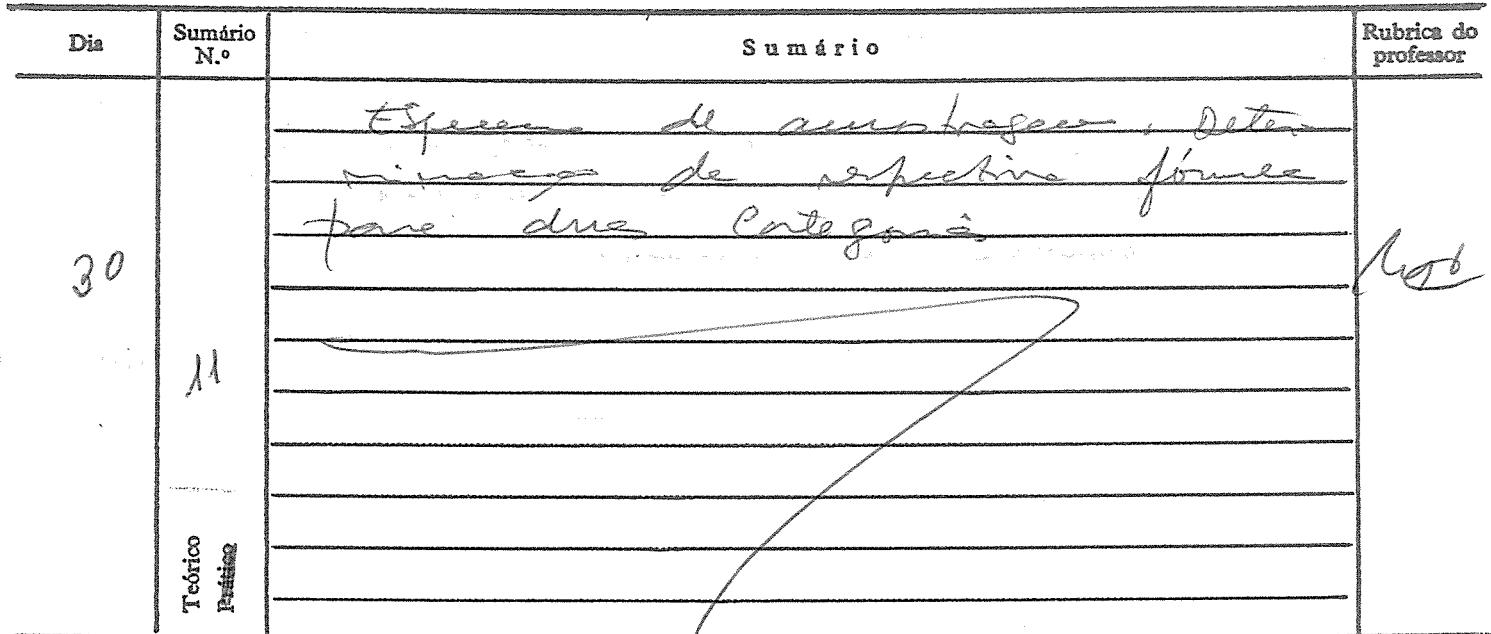 Dia
Sumário N.º
Sumário
Rubrica do professor
30
11
Teórico
Prático
Esquema de amostragem. Deter-
minação da respectiva fórmula
para duas Categorias